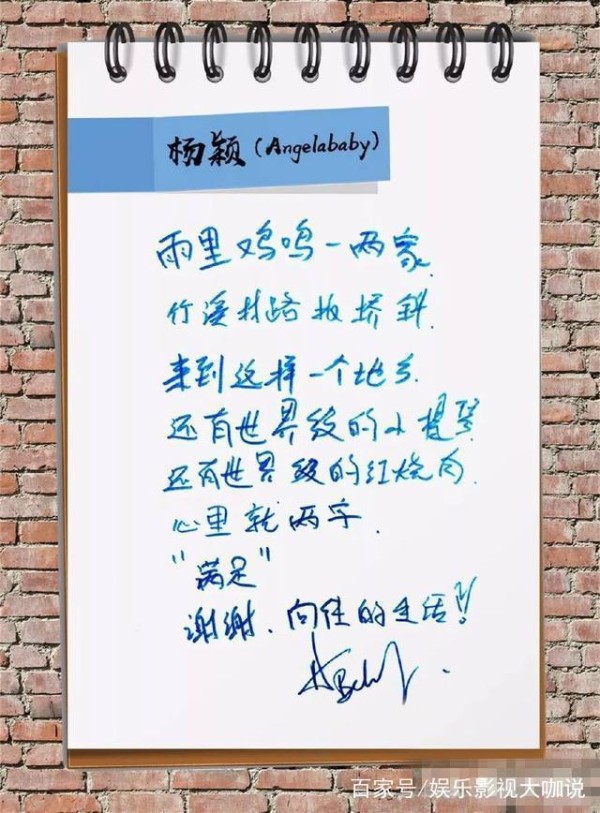 杨颖（Angelababy）
雨里鸡鸣一两家
竹溪村路板桥斜.
来到这样一个地方.
还有世界级的小提琴
还有世界级的红烧肉.
心里就两字.
"满足"
谢谢.向往的生活!!
百家号/娱乐影视大咖说